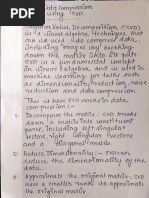 Data Compression
using SVD
Singular Value Decomposition (SVD)
is a linear algebra technique that
can be used data compression,
including images by breaking
down the matrix into its parts
SVD is a fundamental concept
in linear algebra, and is used in
machine learning for tasks such
as dimensionality reduction, data
compression and noise reduction
This is how SVD works in data
compression:-
Decompose the matrix - SVD breaks
down a matrix into constituent
parts, including left singular
vectors, right singular vectors
and a diagonal matrix.
Reduce dimensionality - SVD can
reduce the dimensionality of the
data.
Approximate the original matrix - SVD
uses a smaller rank to approximate
the original matrix